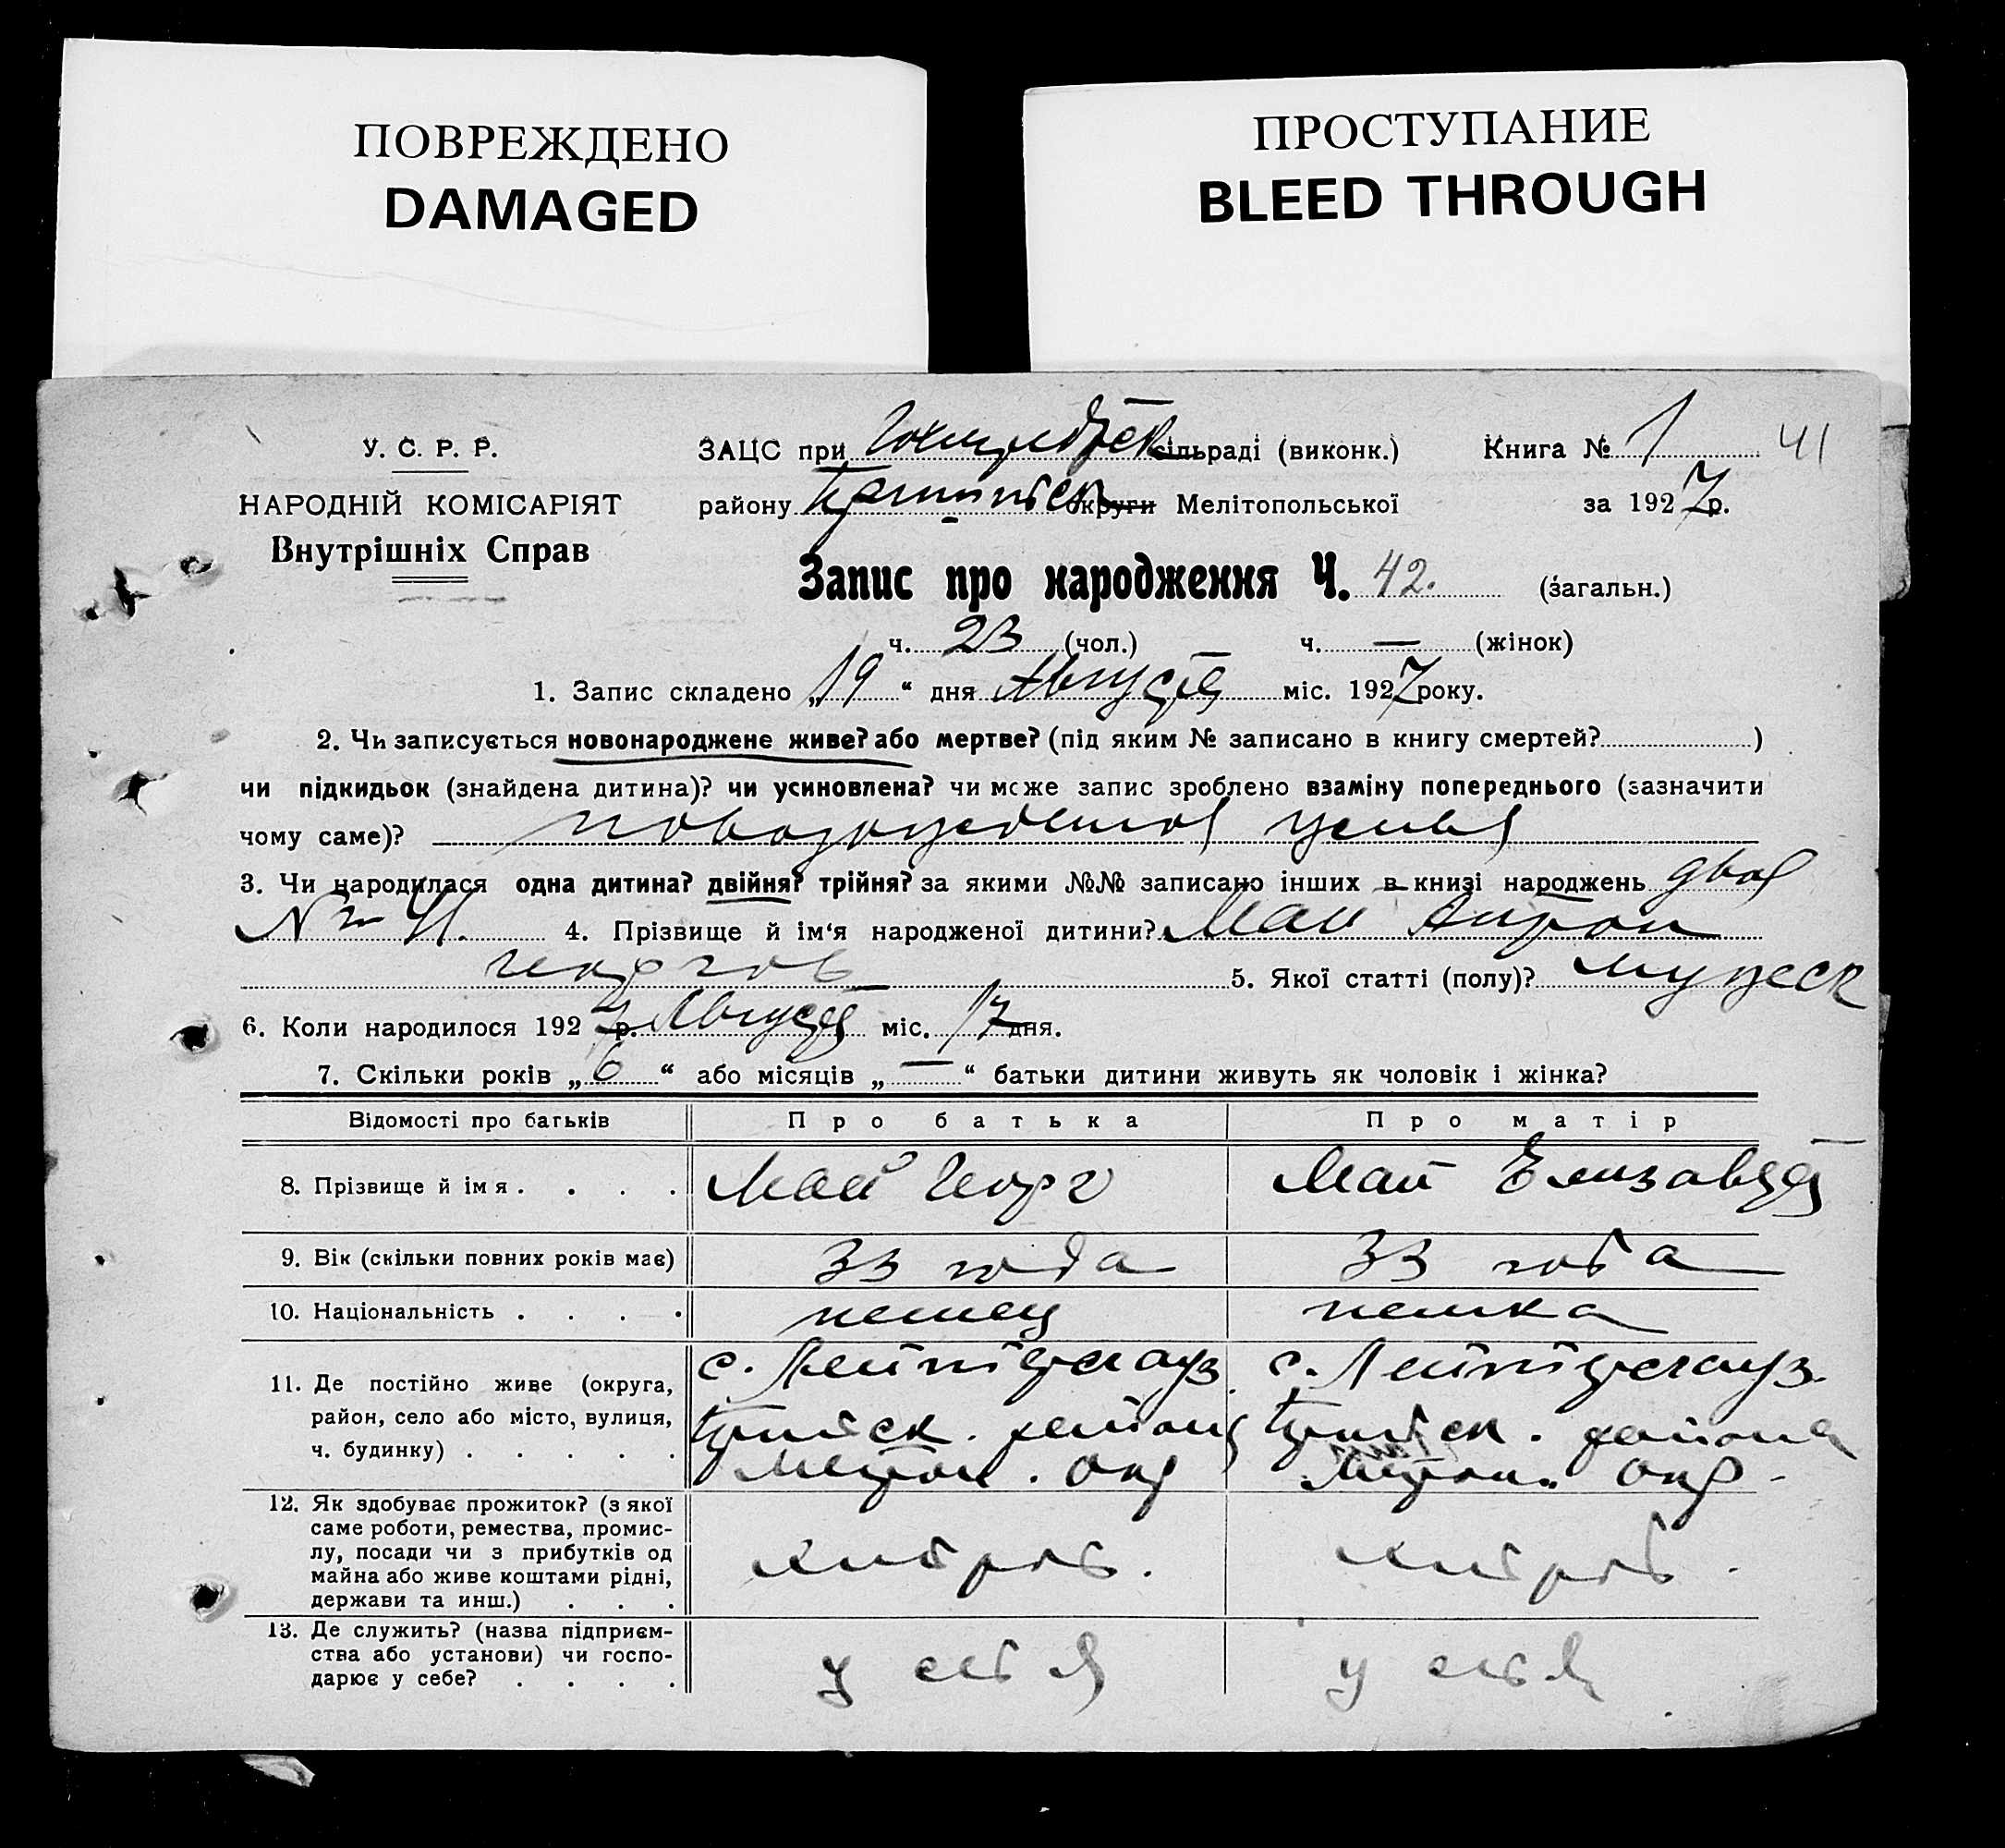 ПОВРЕЖДЕНО
DAMAGED
ПРОСТУПАНИЕ
BLEED THROUGH
У. С. Р. Р.
НАРОДНІЙ КОМІСАРІЯТ
Внутрішніх Справ
ЗАЦС при сільраді (виконк.) Книга № 1 41
району округи Мелітопольської за 1927 р.
Запис про народження Ч. 42. (загальн.)
ч. 23 (чол.) ч. — (жінок)
1. Запис складено „19“ дня Августа міс. 1927 року.
2. Чи записується новонароджене живе? або мертве? (під яким № записано в книгу смертей? )
чи підкидьок (знайдена дитина)? чи усиновлена? чи може запис зроблено взаміну попереднього (зазначити
чому саме)?
3. Чи народилася одна дитина? двійня? трійня? за якими №№ записано інших в книзі народжень двой
№ 41. 4. Прізвище й ім‘я народженої дитини? Май Антон
Георгов 5. Якої статті (полу)? мужеск
6. Коли народилося 1927 р. Августа міс. 17 дня.
7. Скільки років „6“ або місяців „—“ батьки дитини живуть як чоловік і жінка?
Відомості про батьків Про батька Про матір
8. Прізвище й ім я . . . . Май Георг Май Елизавета
9. Вік (скільки повних років має) 33 года 33 года
10. Національність . . . . немец немка
11. Де постійно живе (округа,
район, село або місто, вулиця,
ч. будинку) . . . . .
с. района
Мелтоп. Окр
с. района
Мелтоп. Окр.
12. Як здобуває прожиток? (з якої
саме роботи, ремества, промис-
лу, посади чи з прибутків од
майна або живе коштами рідні,
держави та инш.) . . .
хлебороб.
хлебороб.
13. Де служить? (назва підприєм-
ства або установи) чи госпо-
дарює у себе? . . . .
у себя
у себя